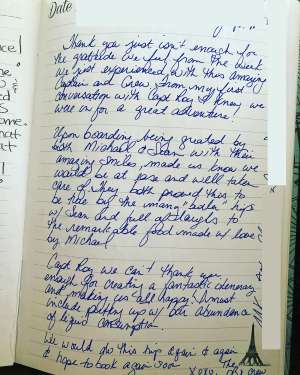 Date
Thank you just isn't enough for
the gratitude we feel from the week
we just experienced with this amazing
Captain and Crew. From my first
conversation with Capt Roy I knew we
were in for a great adventure!
Upon boarding being greated by
both Michael & Sean with their
amazing smiles made us know we
would be at ease and well taken
care of. They both proved this to
be true by the many trips
w/ Sean and full of laughs to
the remarkable food made w/ love
by Michael
Capt Roy we can't thank you
enough for creating a fantastic itinerary
and making us all happy. I must
include putting up w/ our abundance
of liquid consumption.
We would do this trip again & again
& hope to book again soon
XOXO, The Crew